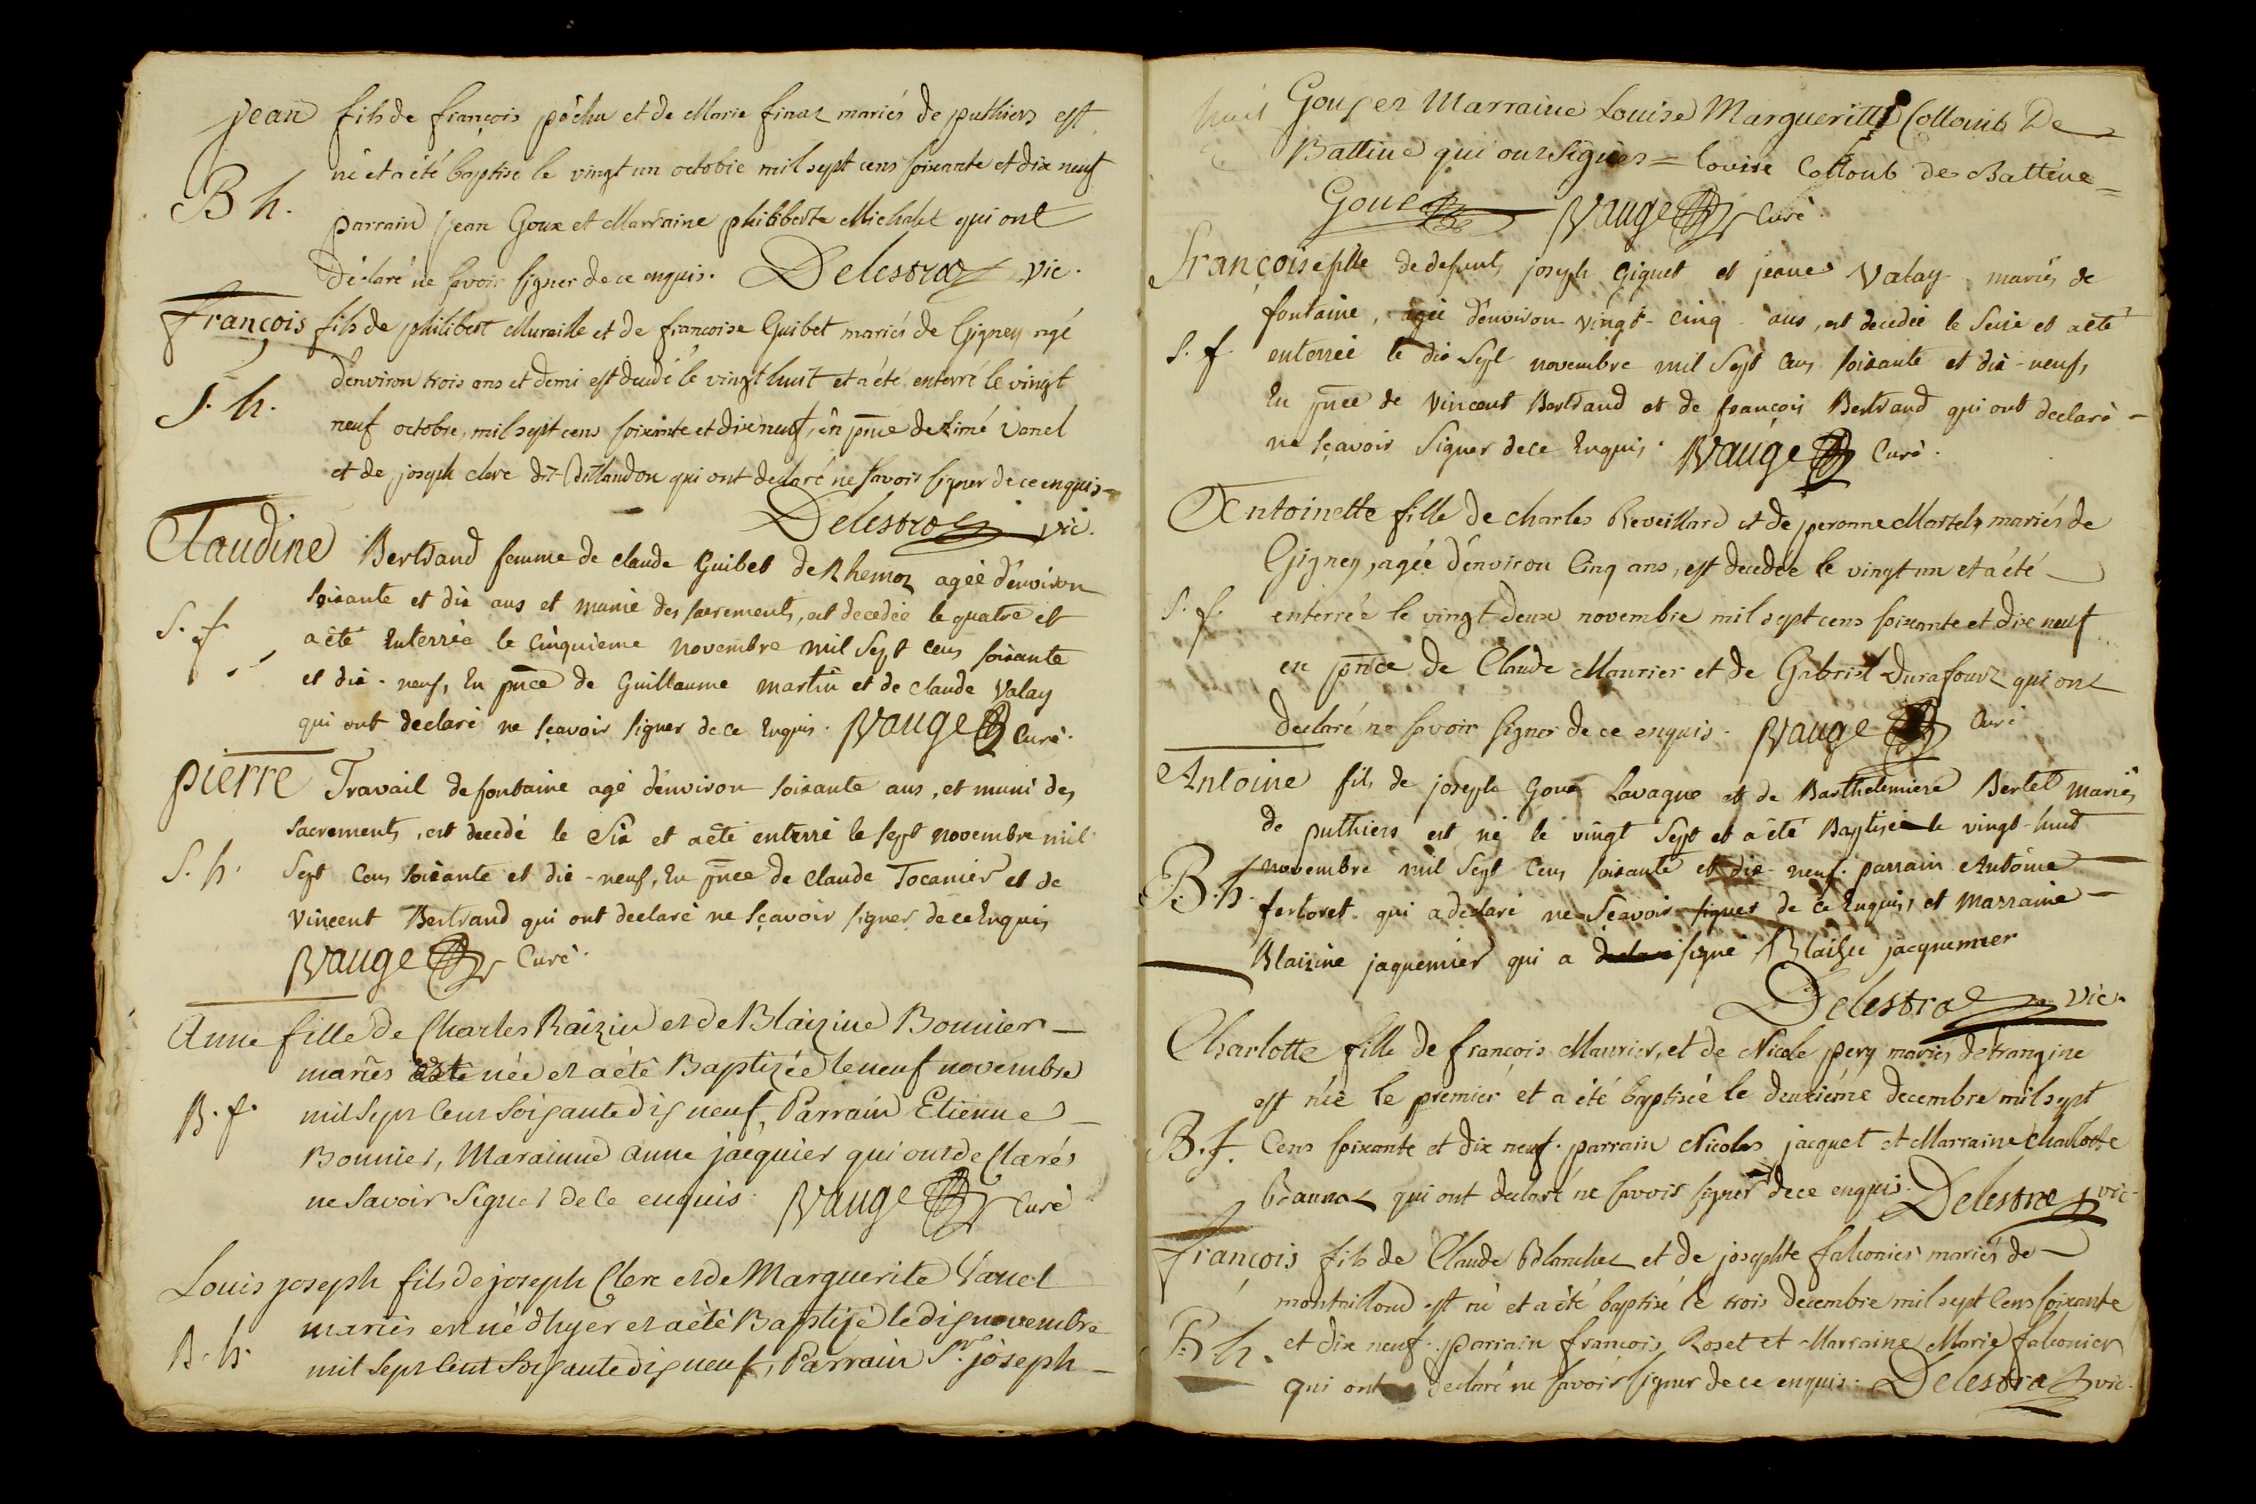 Jean fils de françois pôchu et de Marie finaz mariés de puthiers est
né et a été baptisé le vingt un octobre mil sept cens soixante et dix neuf
B h.
parrain jean Goux et Marraine philiberte Michalet qui ont
déclaré ne savoir signer de ce enquis. Delestraz vic.
françois fils de philibert Muraille et de francoise Guibet mariés de Gigney agé
d'environ trois ans et demi est decedé le vingt huit et a été enterré le vingt
S. h.
neuf octobre, mil sept cens soixante et dix neuf, en pnce de Aimé Vanel
et de joseph clerc dit qui ont declaré ne savoir signer de ce enquis
Delestraz vic.
Claudine Bertrand femme de claude Guibet de Rhemoz agée d'environ
soixante et dix ans et munie des sacrements, est decedée le quatre et
S. f.
a été Enterrée le Cinquieme novembre mil Sept cens soixante
et dix-neuf, En pnce de Guillaume martin et de claude Valay
qui ont declaré ne sçavoir signer de ce Enquis. Vauge Curé.
pierre Travail de fontaine agé d'environ soixante ans, et muni des
sacrements, est decedé le Six et a été enterré le sept novembre mil
S. h.
Sept Cens soixante et dix-neuf, En pnce de Claude Tocanier et de
Vincent Bertrand qui ont declaré ne sçavoir signer de ce Enquis
Vauge Curé.
Anne fille de Charles Raizin et de Blaizine Bonnier
mariés est née et a été Baptizée le neuf novembre
B. f.
mil Sept Cent Soisante dis neuf, Parrain Etienne
Bonnier, Marainne Anne jacquier qui ont declarés
ne Savoir Signer de Ce enquis. Vauge Curé
Louis joseph fils de joseph Clerc et de Marguerite Vanel
mariés est né d'hyer et a été Baptizé le dis novembre
B. h.
mil Sept Cent Soisante dis neuf, Parrain Sr. joseph
Gouf et Marraine Louise Margueritte Colloub De
Battine qui ont Signés = louise Colloub de Battine
Vauge Curé.
Françoise fille de defunts joseph Giguet et jeanne Valay mariés de
fontaine, agée d'environ vingt-cinq ans, est decedée le Seize et a été
S. f.
enterrée le dix Sept novembre mil Sept cens soixante et dix-neuf,
En pnce de Vincent Bertrand et de françois Bertrand qui ont declaré
ne sçavoir Signer de ce Enquis. Vauge Curé.
Antoinette fille de charles Reveillard et de peronne Martel mariés de
Gigney, agée d'environ Cinq ans, est decedée le vingt un et a été
S. f.
enterrée le vingt deux novembre mil sept cens soixante et dix neuf
en pnce de Claude Maurier et de Gabriel Durafour qui ont
declaré ne savoir signer de ce enquis. Vauge Curé
Antoine fils de joseph Goux Lavague et de Barthelemiere Bertet mariés
de puthiers est né le vingt Sept et a été Baptisé le vingt-huit
B. h.
novembre mil Sept Cens soixante et dix-neuf. parrain Antoine
ferloret qui a declaré ne Sçavoir signer de ce Enquis, et marraine
Blaizine jaquemier qui a declaré signé Blaizie jacquemier
Delestraz vic.
Charlotte fille de françois Maurier, et de Nicole pery mariés de trangine
est née le premier et a été baptisée le deuxiéme decembre mil sept
B. f.
Cens soixante et dix neuf. parrain Nicolas jacquet et Marraine charlotte
qui ont declaré ne savoir signer de ce enquis. Delestraz vic.
françois fils de Claude Blanchet et de josephte falconier mariés de
montaillond est né et a été baptisé le trois decembre mil sept Cens soixante
B h.
et dix neuf. parrain françois Roset et Marraine Marie falconier
qui ont declaré ne savoir signer de ce enquis. Delestraz vic.